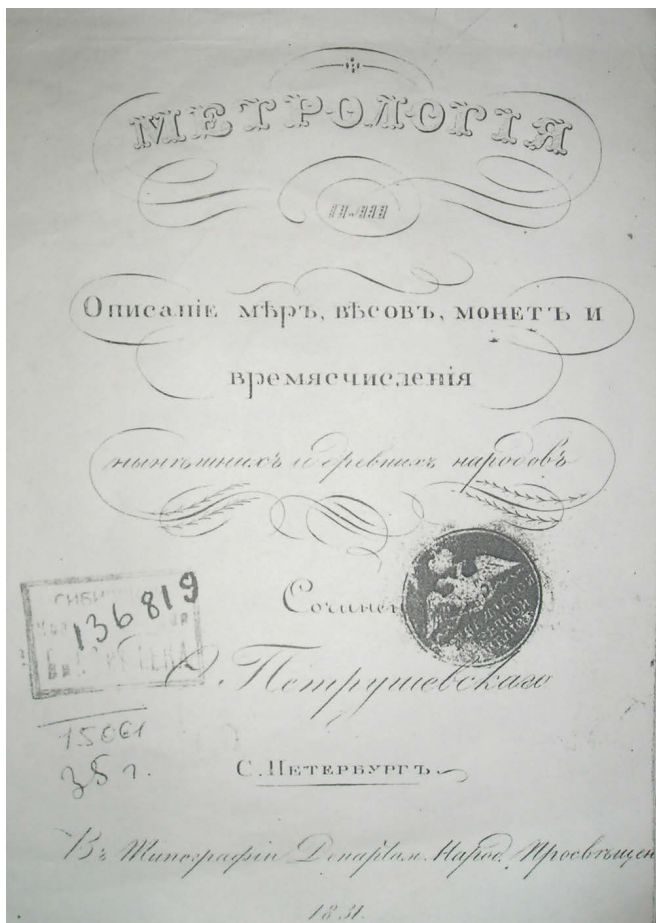 МЕТРОЛОГІЯ
или
Описаніе мѣръ, вѣсовъ, монетъ и
времясчисленія
нынѣшнихъ и древнихъ народовъ
136819
Ѳ. Петрушевскаго
15061
35 г.
С. ПЕТЕРБУРГЪ
Въ Типографіи Департам. Народ. Просвѣщен
1831.